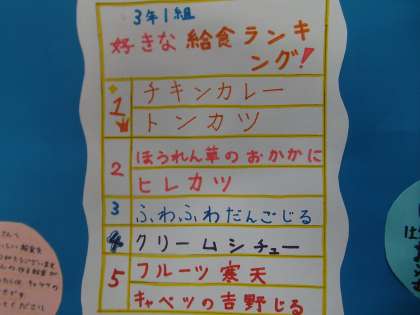 3年1組
好きな給食ランキ
ング!
1
チキンカレー
トンカツ
2
ほうれん草のおかかに
ヒレカツ
3
ふわふわだんごじる
4
クリームシチュー
5
フルーツ寒天
キャベツの吉野じる